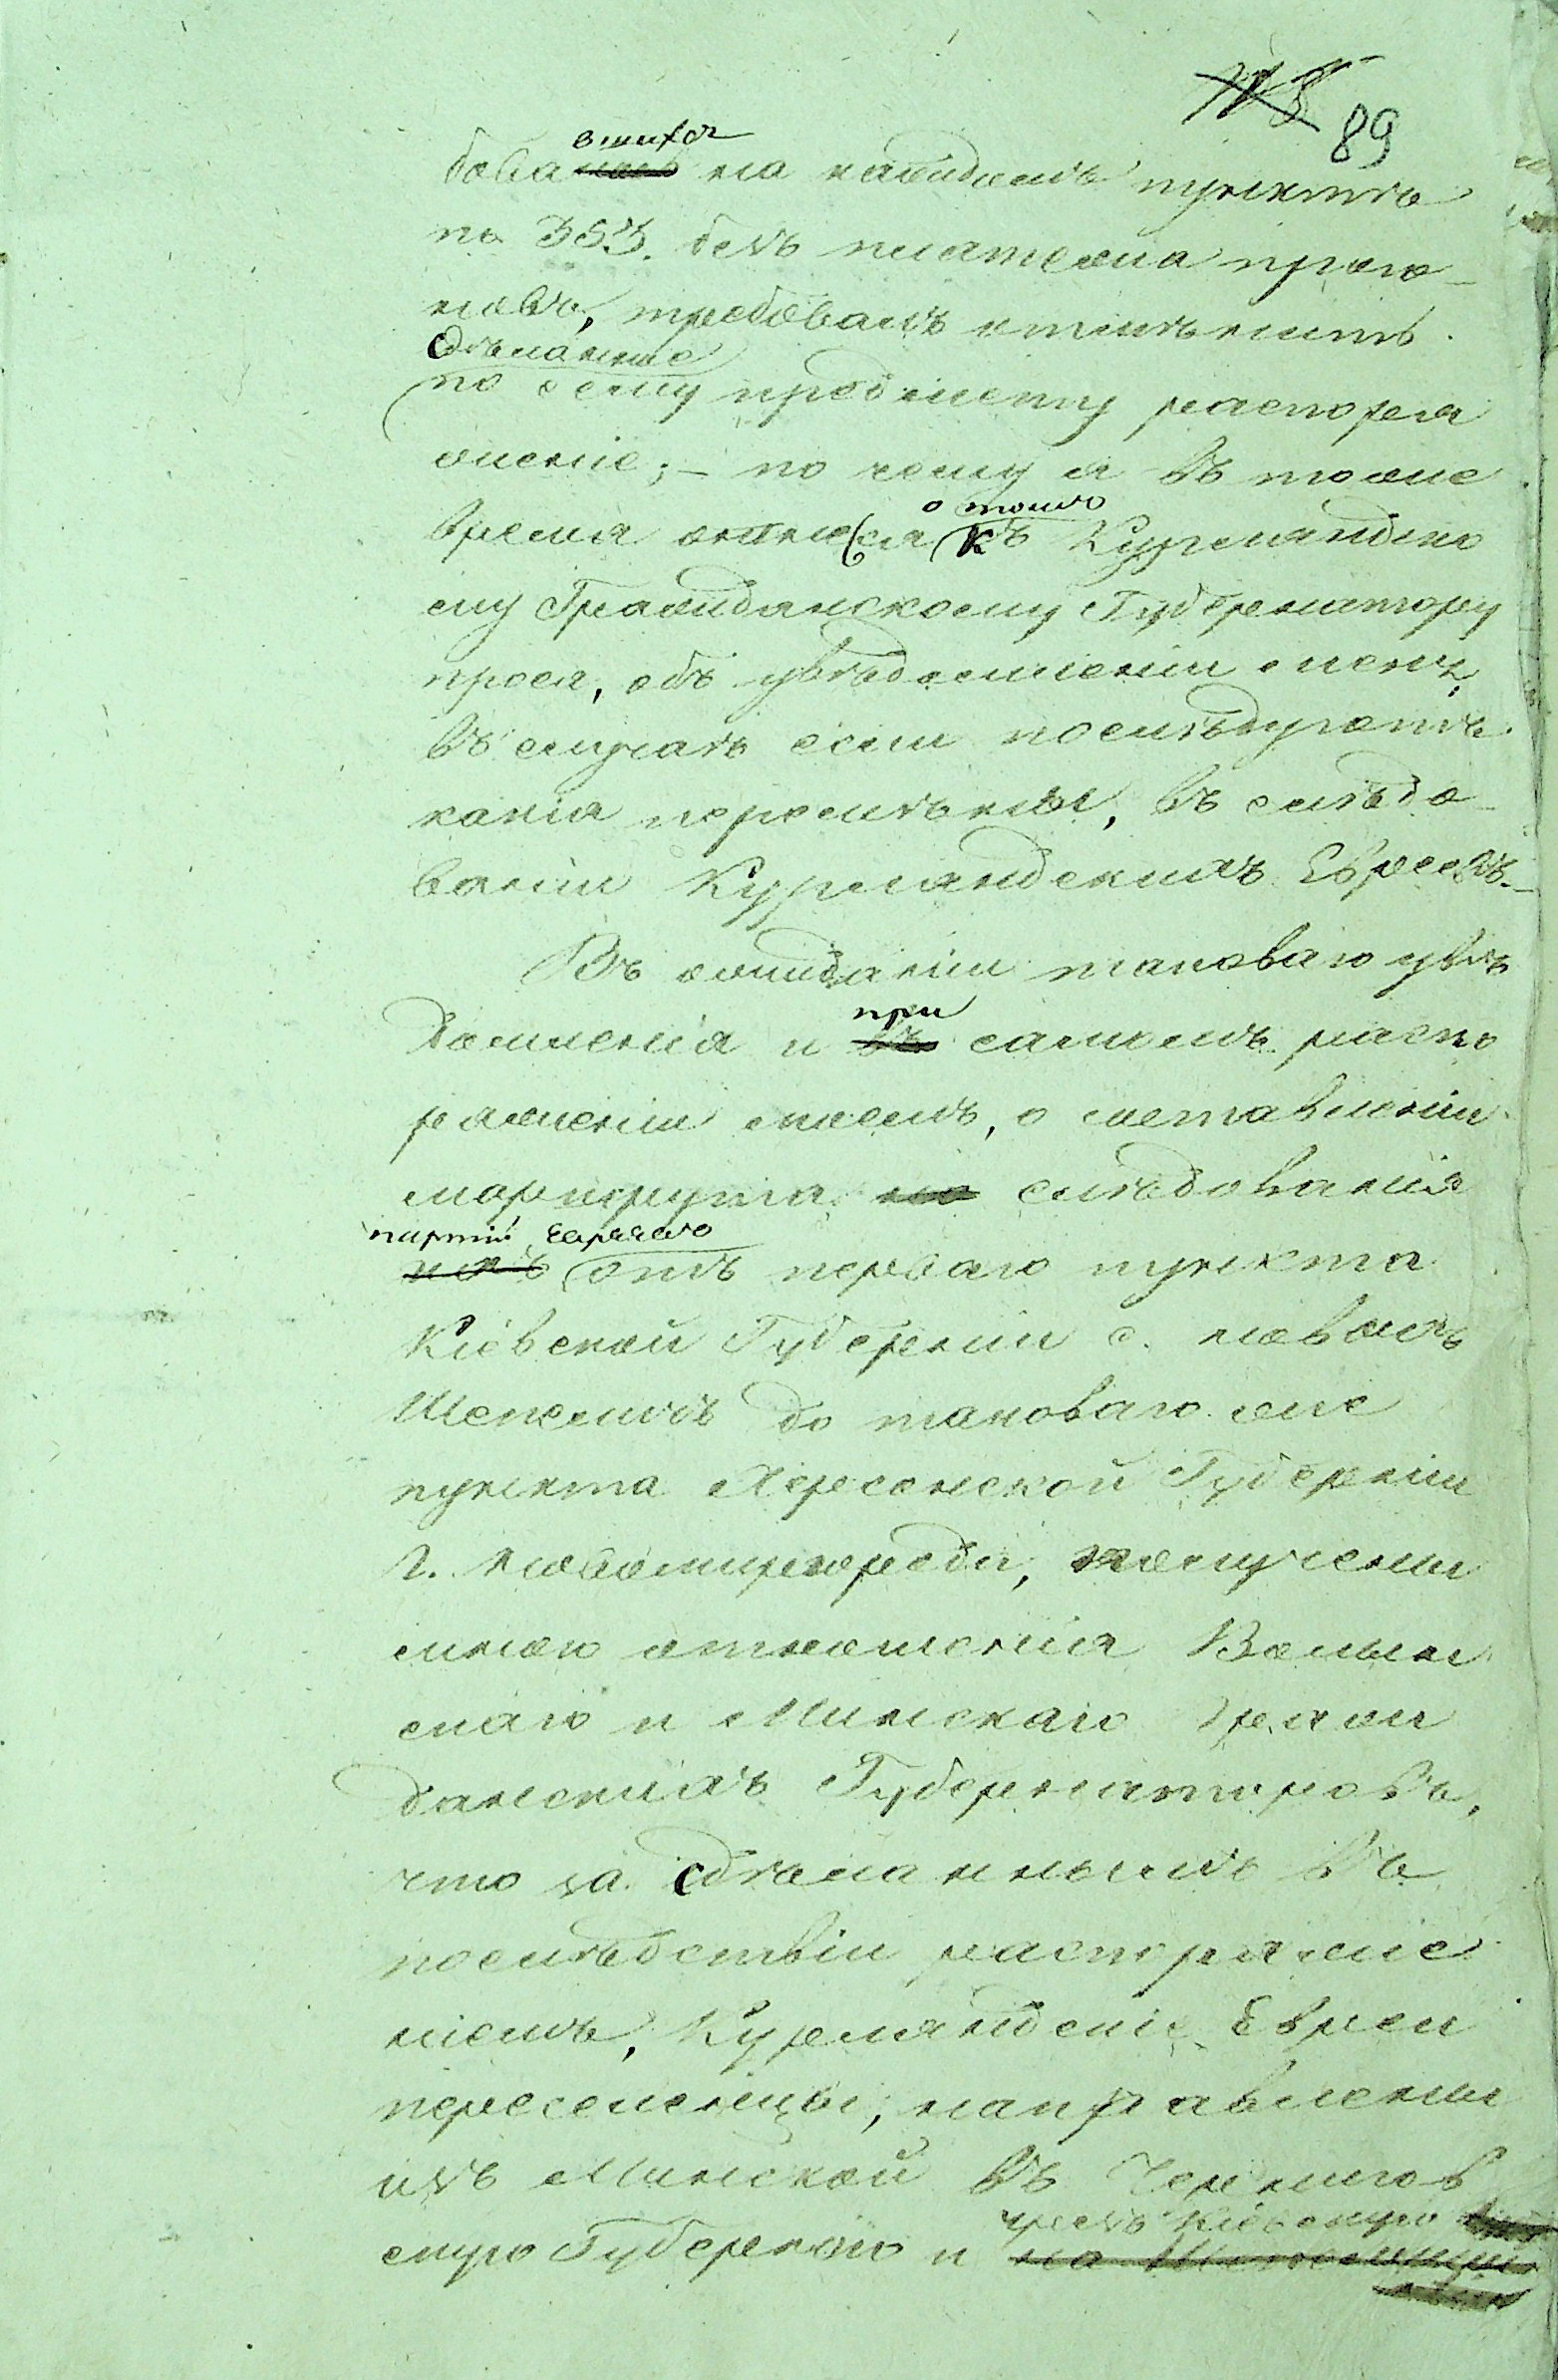 89
вшихся
бова на каждомъ пунктѣ
по 353. безъ платежа прого-
новъ, требовалъ отмѣнить
сдѣланное
по сему предмету распоря
женіе; – по чему я въ тоже
о томъ
время отнесся къ Курляндско
му Гражданскому Губернатору
прося, объ увѣдомленіи меня,
въ случаѣ если послѣдуютъ
какія перемѣны, въ слѣдо-
ваніи Курляндскихъ Евреевъ.–
Въ ожиданіи таковаго увѣ
при
домленія и въ самомъ распо
ряженіи моемъ, о составленіи
маршрута на слѣдованія
партій Евреевъ
ихъ отъ перваго пункта
Кіевской Губерніи с. новыхъ
Шепеличъ до таковаго же
пункта Херсонской Губерніи
г. Новомиргорода, получены
мною отношенія Волын
скаго и Минскаго Граж
данскихъ Губернаторовъ,
что за сдѣланнымъ въ
послѣдствіи распоряже
ніемъ, Курляндскіе Евреи
переселенцы, направлены
изъ Минской въ Чернигов
чрезъ Кіевскую
скую Губернію и на